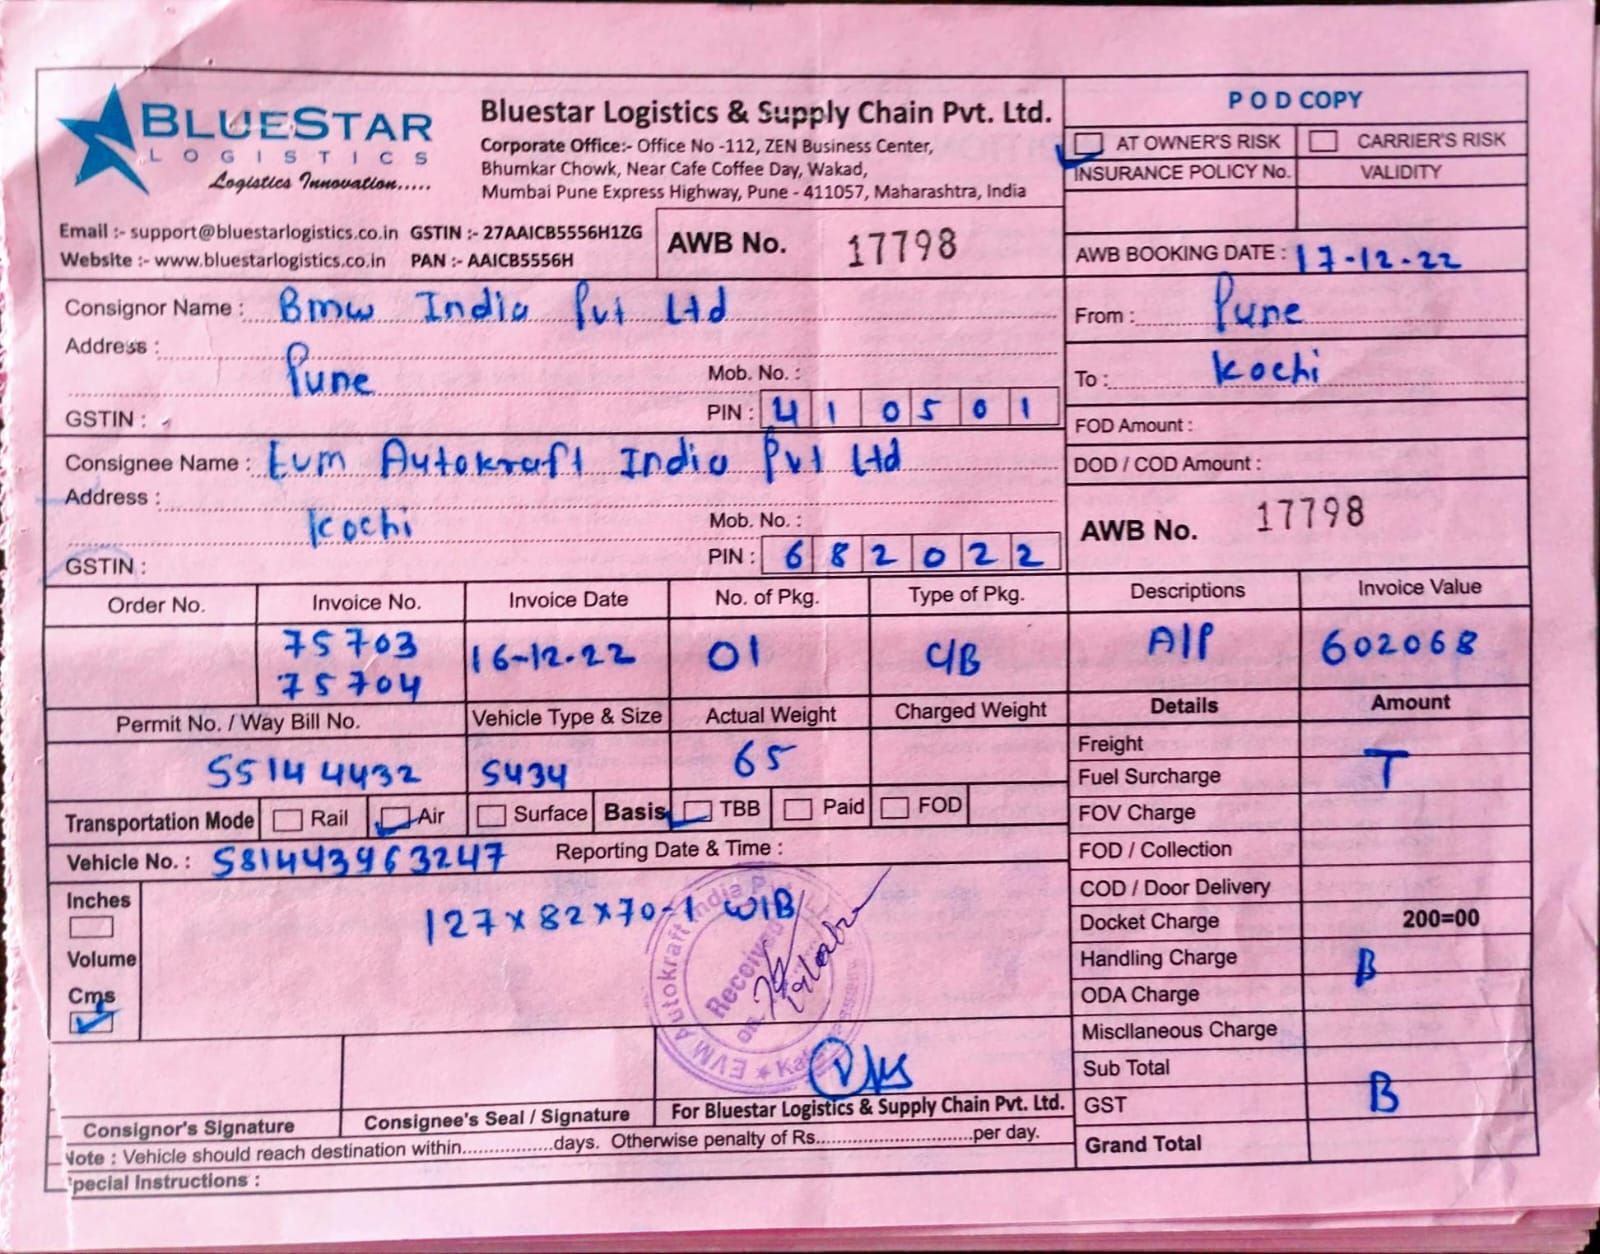 BLUESTAR
LOGISTICS
Logistics Innovation.....
Bluestar Logistics & Supply Chain Pvt. Ltd.
Corporate Office:- Office No -112, ZEN Business Center,
Bhumkar Chowk, Near Cafe Coffee Day, Wakad,
Mumbai Pune Express Highway, Pune - 411057, Maharashtra, India
Email :- support@bluestarlogistics.co.in GSTIN :- 27AAICB5556H1ZG
Website :- www.bluestarlogistics.co.in PAN :- AAICB5556H
AWB No. 17798
P O D COPY
AT OWNER'S RISK CARRIER'S RISK
INSURANCE POLICY No. VALIDITY
AWB BOOKING DATE : 17-12-22
Consignor Name : Bmw India Pvt Ltd
Address :
Pune
Mob. No. :
GSTIN :
PIN : 410501
From : Pune
To : Kochi
FOD Amount :
DOD / COD Amount :
Consignee Name : Evm Autokraft India Pvt Ltd
Address :
Kochi
Mob. No. :
GSTIN :
PIN : 682022
AWB No. 17798
Order No. Invoice No. Invoice Date No. of Pkg. Type of Pkg. Descriptions Invoice Value
75703 16-12-22 01 C/B A/P 602068
75704
Permit No. / Way Bill No. Vehicle Type & Size Actual Weight Charged Weight
55144432 5434 65
Transportation Mode Rail Air Surface Basis TBB Paid FOD
Vehicle No. : 581443963247 Reporting Date & Time :
Inches
Volume
Cms
127 x 82 x 70-1 W/B
EVM Autokraft India
Received
on
Details Amount
Freight
T
Fuel Surcharge
FOV Charge
FOD / Collection
COD / Door Delivery
Docket Charge 200=00
Handling Charge B
ODA Charge
Miscllaneous Charge
Sub Total
GST B
Grand Total
Consignor's Signature Consignee's Seal / Signature For Bluestar Logistics & Supply Chain Pvt. Ltd.
Note : Vehicle should reach destination within..................days. Otherwise penalty of Rs..............................per day.
pecial Instructions :